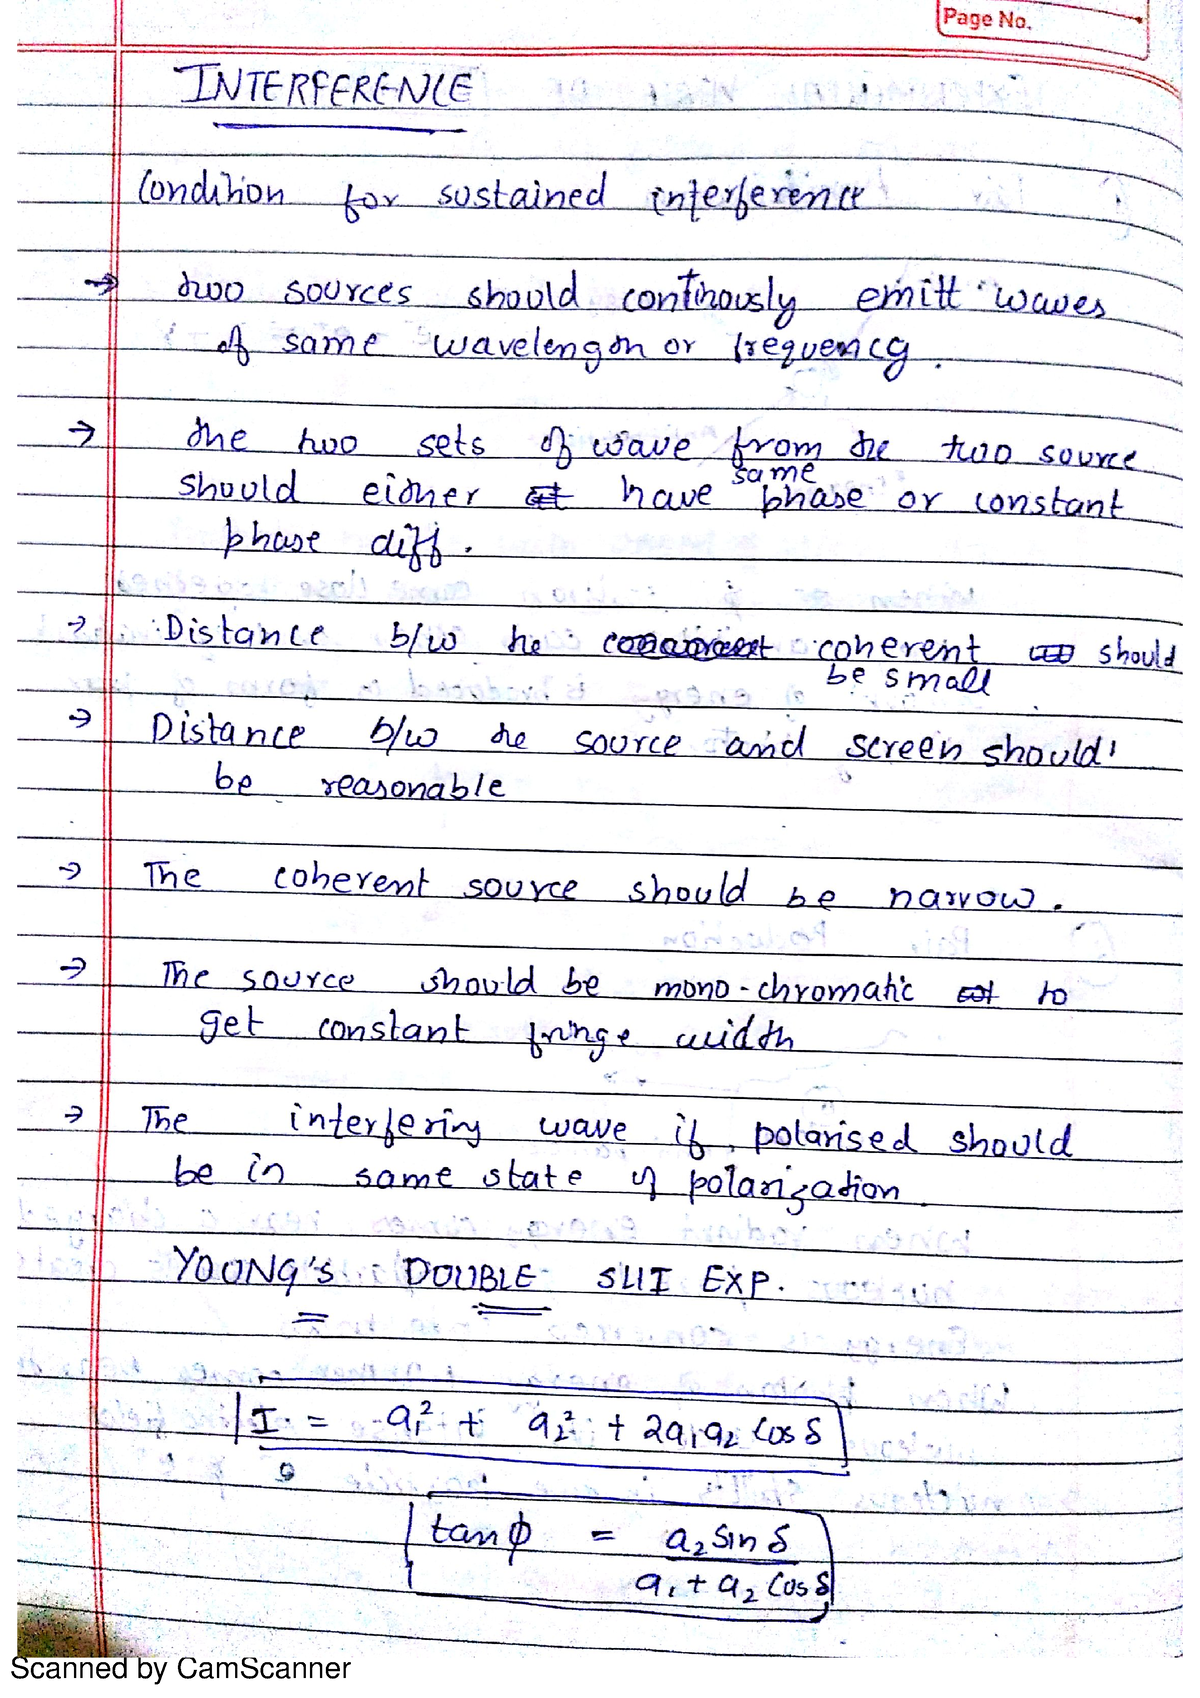 Page No.
INTERFERENCE
Condition for sustained interference
→ two sources should continously emitt waves
of same wavelength or frequency.
→ the two sets of wave from the two source
same
should either have phase or constant
phase diff.
→ Distance b/w he coherent should
be small
→ Distance b/w the source and screen should
be reasonable
→ The coherent source should be narrow.
→ The source should be mono-chromatic to
get constant fringe width
→ The interfering wave if polarised should
be in same state of polarization.
YOONG'S DOUBLE SLIT EXP.
I = a₁² + a₂² + 2a₁a₂ cos δ
tan ϕ = a₂ sin δ
a₁ + a₂ cos δ
Scanned by CamScanner